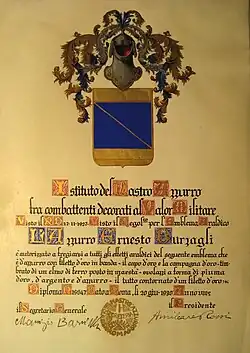 Istituto del Nastro Azzurro
fra combattenti decorati al Valor Militare
Visto il R.D. Visto il per l'Emblema Araldico
Ernesto Burzagli
è autorizzato a fregiarsi a tutti gli effetti araldici del seguente emblema che
è d'azzurro con filetto d'oro in banda - il capo d'oro e la campagna d'oro - tim-
brato di un elmo di ferro posto in maestà - svolazzi a forma di piuma
d'oro, d'argento e d'azzurro - il tutto contornato d'un filetto d'oro
Diploma Roma, li 20 giu
Il Segretario Generale Il Presidente